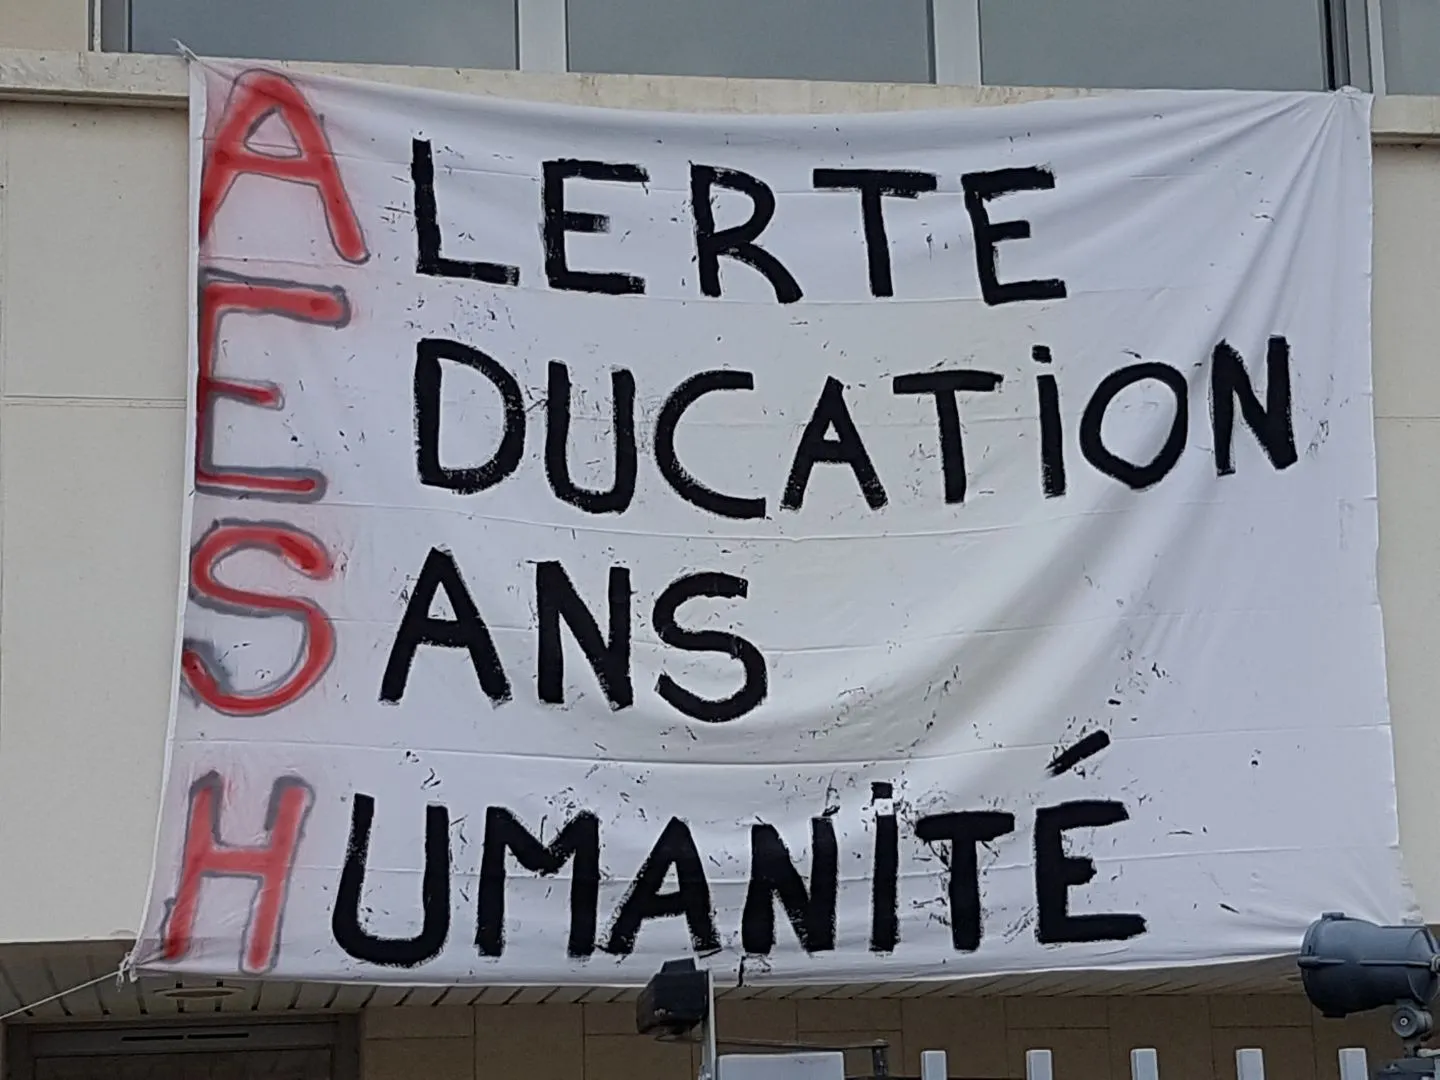 ALERTE
EDUCATION
SANS
HUMANITÉ